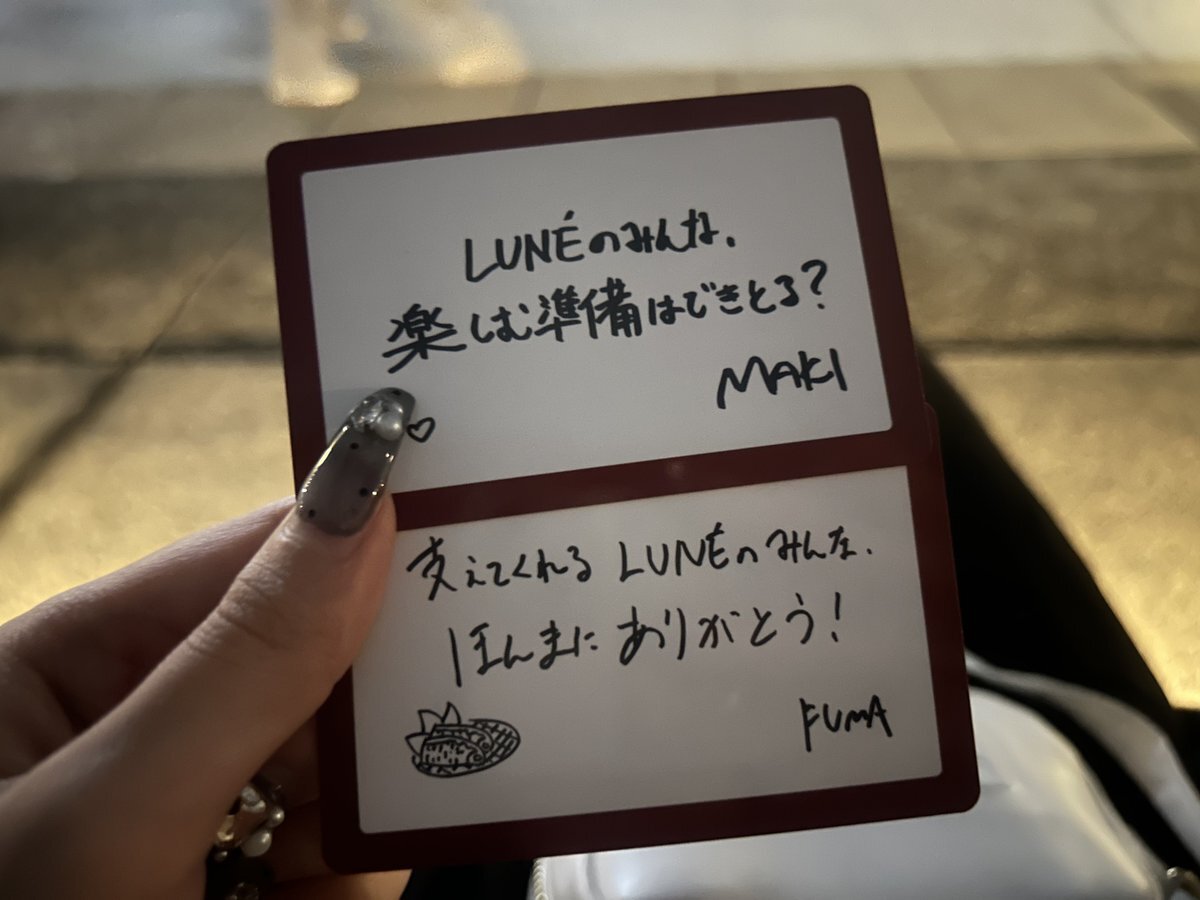 LUNÉのみんな、
楽しむ準備はできとる?
MAKI
支えてくれる LUNÉのみんな、
ほんまに ありがとう!
FUMA